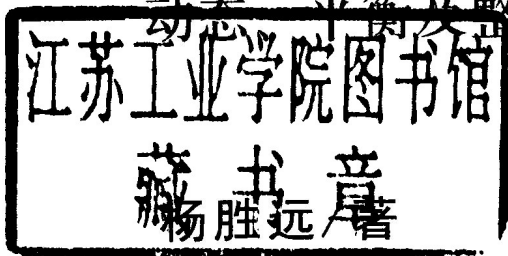 动态、平衡及整
江苏工业学院图书馆
藏书章
杨胜远/著